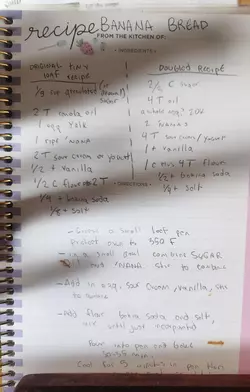 recipe BANANA BREAD
FROM THE KITCHEN OF:
INGREDIENTS
ORIGINAL TINY
loaf recipe
1/3 cup granulated (or
sugar
2 T canola oil
1 egg yolk
1 ripe 'nana
2 T sour cream or yogurt
1/2 t vanilla
1/2 C flour + 2 T
1/4 t baking soda
1/8 t salt
Doubled Recipe
2/3 C sugar
4 T oil
2 bananas
4 T sour cream/yogurt
1 t vanilla
1 C + 4 T flour
1/2 t baking soda
1/4 t salt
DIRECTIONS
- Grease a small loaf pan
Preheat oven to 350 F
- in a small combine SUGAR
'NANA stir to combine
- Add in egg, sour cream, vanilla, stir
to combine
- Add flour baking soda and salt,
stir until just
Pour into pan and bake
Cool for 5 minutes in pan then